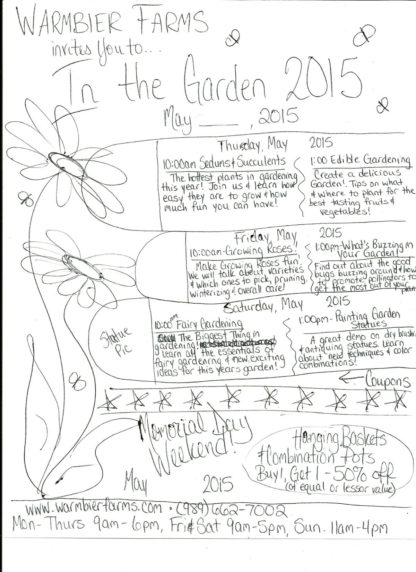 WARMBIER FARMS
invites You to...
In the Garden 2015
May ____, 2015
Thursday, May 2015
10:00am Sedums & Succulents
The hottest plants in gardening
this year! Join us & learn how
easy they are to grow & how
much fun you can have!
1:00 Edible Gardening
Create a delicious
Garden!. Tips on what
& where to plant for the
best tasting fruits &
vegetables!
Friday, May 2015
10:00am-Growing Roses!
Make Growing Roses fun!
We will talk about varieties
& which ones to pick, pruning,
winterizing & overall care!
1:00pm-What's Buzzing in
Your Garden!
Find out about the good
bugs buzzing around & how
to promote pollinators to
get the most out of your
Saturday, May 2015
10:00am Fairy Gardening
The Biggest Thing in
gardening!
Learn all the essentials of
fairy gardening & new exciting
ideas for this years garden!
1:00pm- Painting Garden
Statues
A great demo on dry brushing
& antiquing statues. Learn
about new techniques & color
combinations!
Statue
Pic
← Coupons
Memorial Day
Weekend!
May 2015
Hanging Baskets
& Combination Pots
Buy 1, Get 1 - 50% off
(of equal or lessor value)
www.warmbierfarms.com • (989) 662-7002
Mon-Thurs 9am-6pm, Fri & Sat 9am-5pm, Sun. 11am-4pm